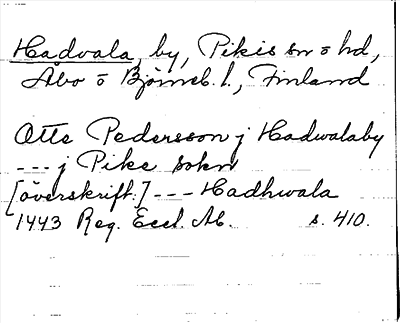 Hadvala, by, Pikis sn o hd,
Åbo o Björneb. l., Finland
Otte Pedersson j Hadwalaby
--- j Pike sokn
[överskrift.] --- Hadhwala
1443 Reg. Eccl. Ab. s. 410.